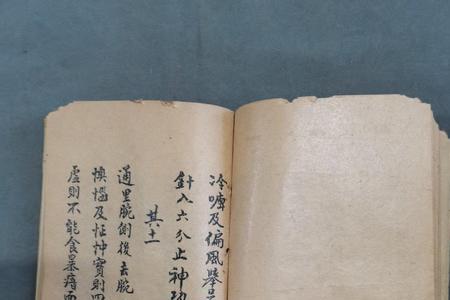 冷及偏風舉
針入六分止神功
其十一
通里腕側後去腕
懊惱及怔忡實則四
虛則不能食暴面